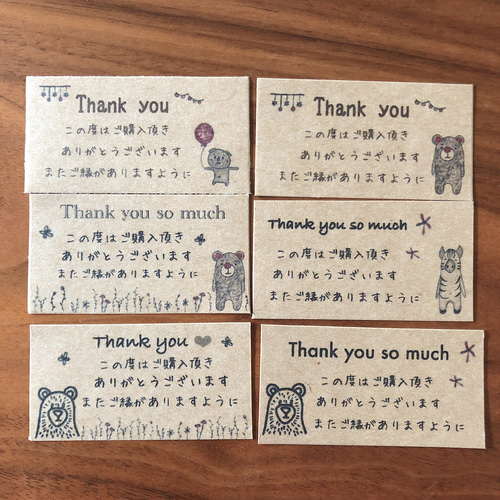 Thank you
この度はご購入頂き
ありがとうございます
またご縁がありますように
Thank you
この度はご購入頂き
ありがとうございます
またご縁がありますように
Thank you so much
この度はご購入頂き
ありがとうございます
またご縁がありますように
Thank you so much
この度はご購入頂き
ありがとうございます
またご縁がありますように
Thank you
この度はご購入頂き
ありがとうございます
またご縁がありますように
Thank you so much
この度はご購入頂き
ありがとうございます
またご縁がありますように